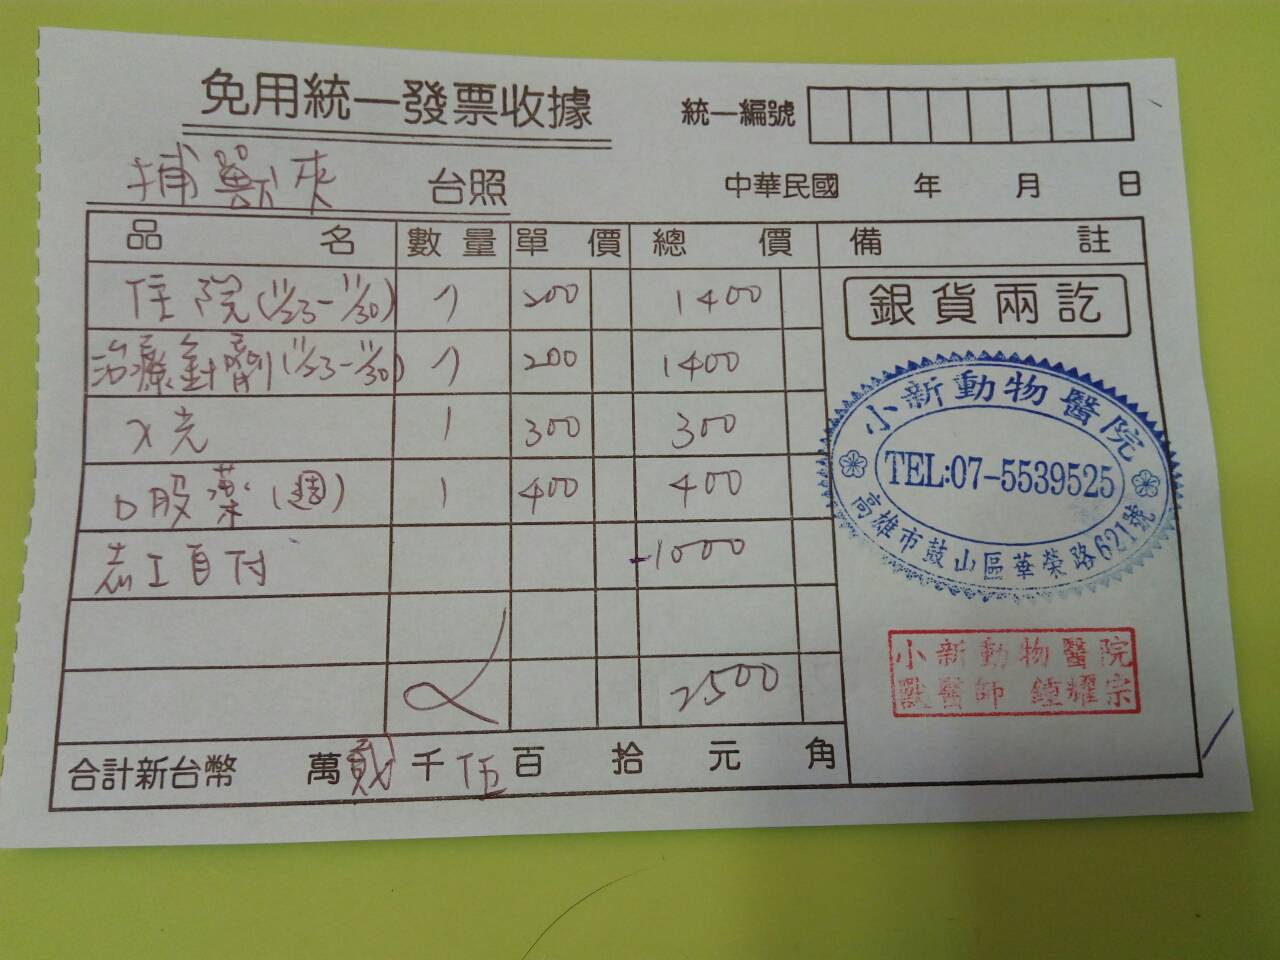 免用統一發票收據
統一編號
捕獸夾 台照
中華民國 年 月 日
品名 數量 單價 總價 備註
住院(11/23-11/30) 7 200 1400
治療針劑(11/23-11/30) 7 200 1400
X光 1 300 300
口服藥(週) 1 400 400
志工自付 -1000
2500
合計新台幣 萬 貳 千 伍 百 拾 元 角
銀貨兩訖
小新動物醫院
TEL:07-5539525
高雄市鼓山區華榮路621號
小新動物醫院
獸醫師 鍾耀宗